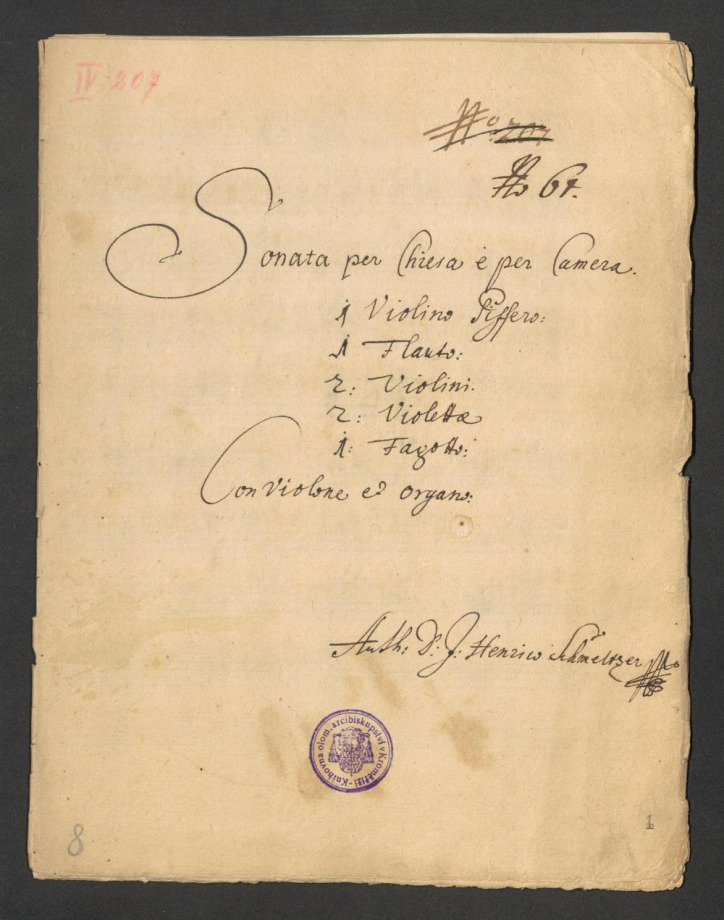 IV 207
No 207
No 67.
Sonata per Chiesa è per Camera.
1 Violino Piffero:
1 Flauto:
2: Violini.
2: Violettæ
1: Fagotto:
Con Violone ed organo:
Auth: D: J: Henrico Schmeltzer
Knihovna olom. arcibiskupství v Kroměříži
8
1